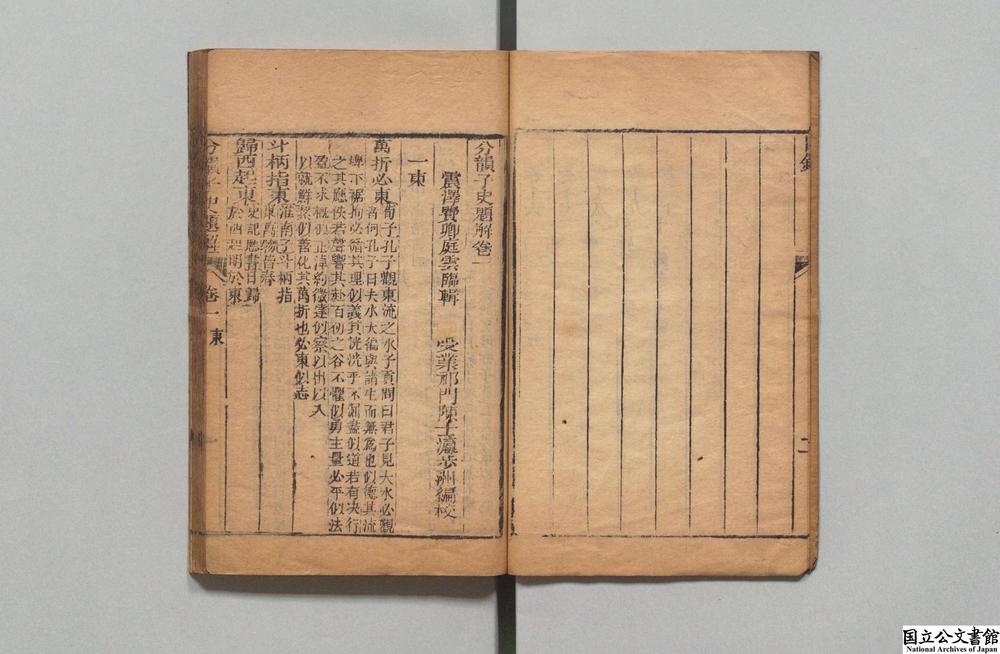 目錄
二
分韻子史題解卷一
震澤費卿庭雲臨輯 受業祁門陳子瀛步洲編校
一東
萬折必東
荀子孔子觀東流之水子貢問曰君子見大水必觀
焉何孔子曰夫水大徧與諸生而無爲也似德其流
埤下裾拘必循其理似義其洸洸乎不淈盡似道若有决行
之其應佚若聲響其赴百仞之谷不懼似勇主量必平似法
盈不求概似正淖約微達似察以出以入
以就鮮絜似善化其萬折也必東似志
斗柄指東
淮南子斗柄指
東萬物皆春
歸西起東
史記歷書日歸
於西起明於東
分韻子史題解
卷一 東
国立公文書館
National Archives of Japan